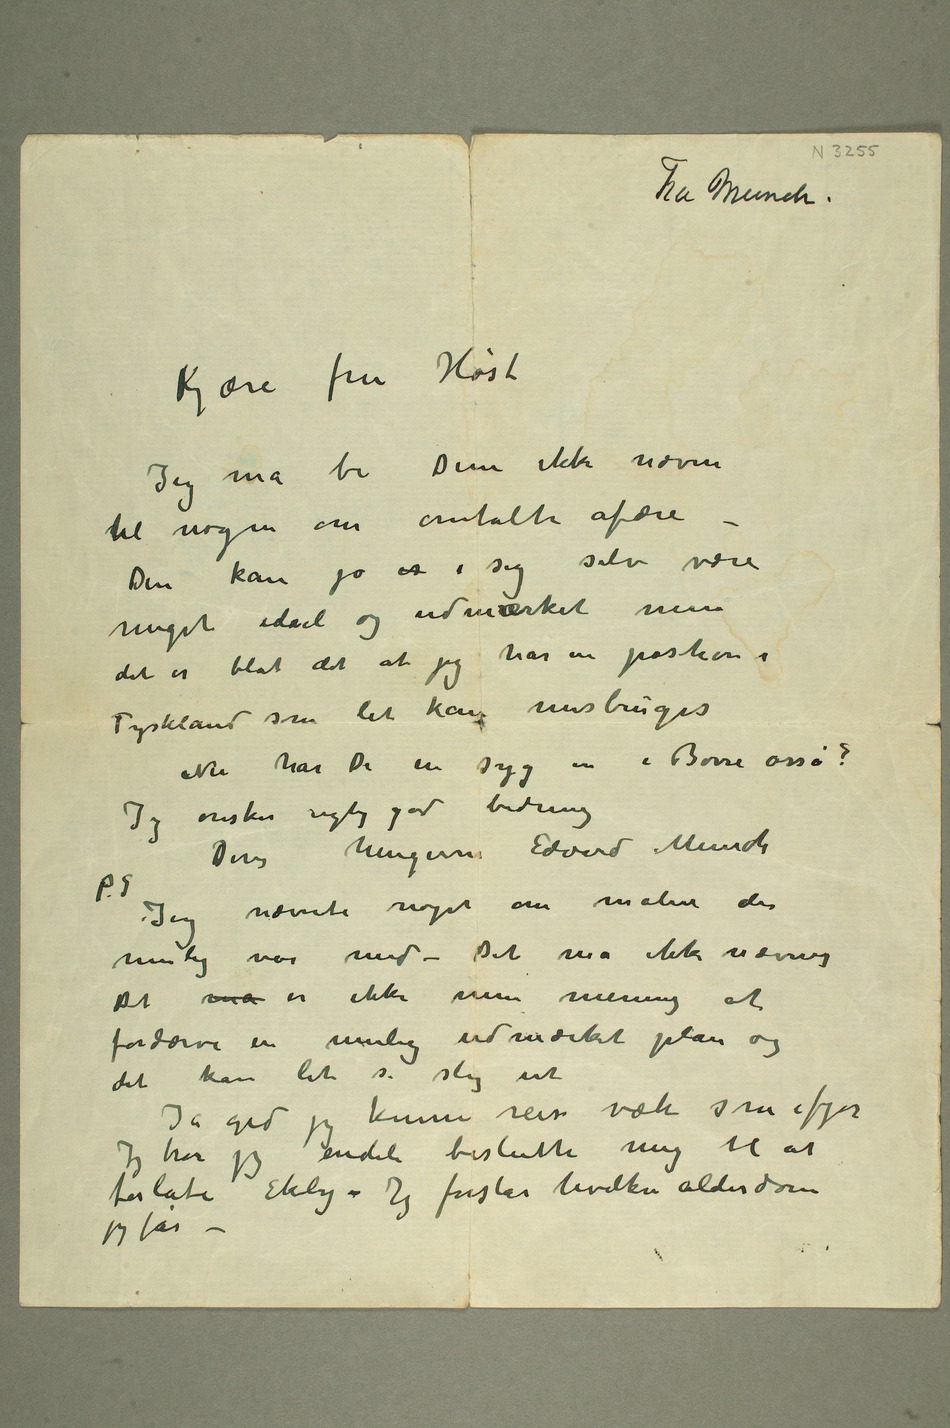 N 3255
Fra Munch.
Kjære fru Høst
Jeg må be Dem ikke nævne
til nogen om omtalte afære –
Den kan jo er i sig selv være
meget ideel og udmærket men
det er blot det at jeg har en position i
Tyskland som let kan misbruges
Nu har De en syg en i Borre også?
Jeg ønsker rigtig god bedring
Deres hengivne Edvard Munch
P.S
Jeg nævnte noget om malere der
mulig var med – Det må ikke nævnes
Det må er ikke min mening at
fordærve en mulig udmærket plan og
det kan let se slig ut
Ja gid jeg kunne reise væk som ifjor
Jeg tror jeg endeli beslutte mig til at
forlate Ekely – Jeg forstår hvilken alderdom
jeg får –